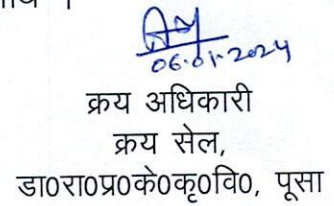 06.01.2024
क्रय अधिकारी
क्रय सेल,
डा०रा०प्र०के०कृ०वि०, पूसा